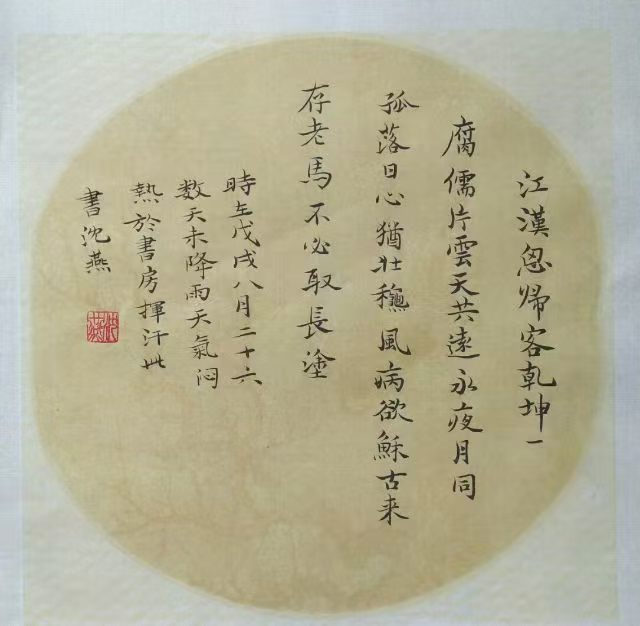 江漢忽帰客乾坤一
腐儒片雲天共遠永夜月同
孤落日心猶壮穐風病欲穌古来
存老馬不必取長塗
時在戊戌八月二十六
数天未降雨天氣闷
熱於書房揮汗此
書沈燕